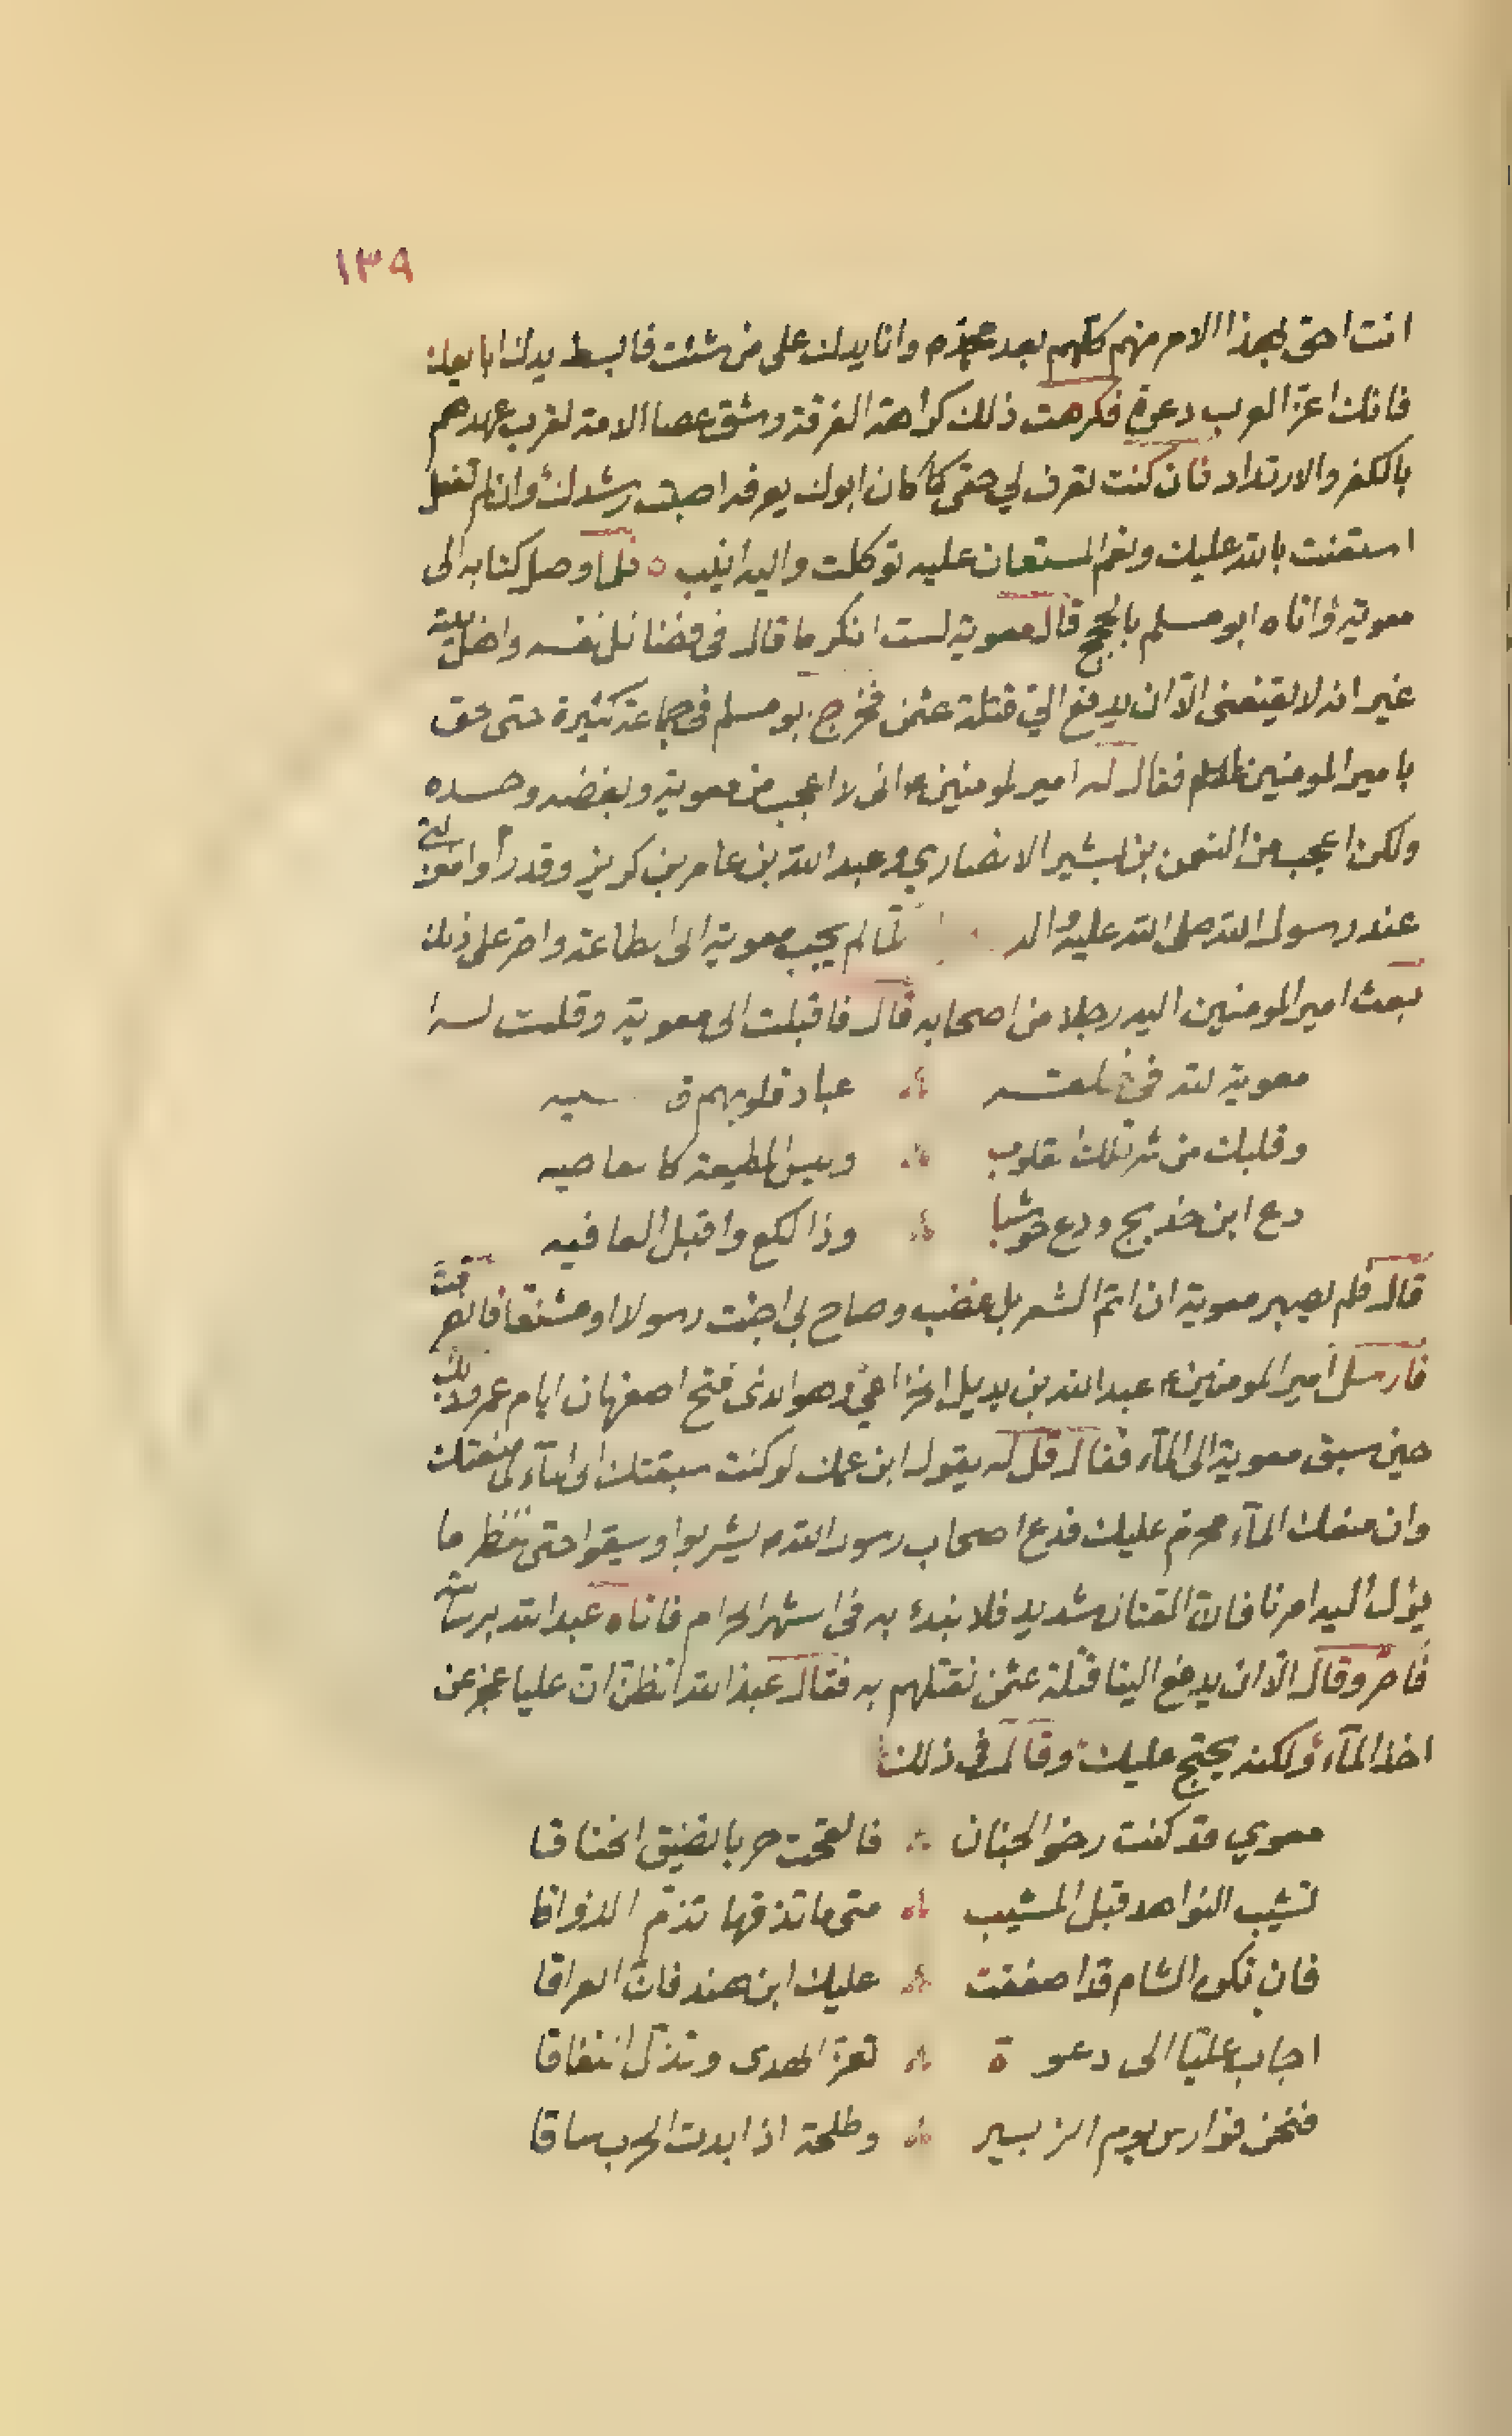 ١٣٩
انت احق بهذا الامر منهم كلهم بعد محمد ص وانا يدك على من شئت فابسط يدك ابايعك
فانك اعز العرب دعوة فكرهت ذلك كراهة الفرقة وشق عصا الامة لقرب عهدهم
بالكفر والارتداد فان كنت تعرف لي حقي كما كان ابوك يعرفه اصبت رشدك وان لم تفعل
استعنت بالله عليك ونعم المستعان عليه توكلت واليه انيب ه فلما وصل كتابه الى
معوية واتاه ابو مسلم بالحجج قال معوية لست انكر ما قال في فضائل نفسه واهل بيته
غير انه لا يقنعني الا ان يدفع الي قتلة عثمن فخرج ابو مسلم في جماعة كثيرة حتى لحق
بامير المومنين فقال له امير المومنين ع انى لا اعجب من معوية وبغضه وحسده
ولكن اعجب من النعمن بن بشير الانصاري وعبد الله بن عامر بن كريز وقد رأوا منزلتي
عند رسول الله صلى الله عليه واله لما لم يجب معوية الى الطاعة واصر على ذلك
بعث امير المومنين اليه رجلا من اصحابه قال فاقبلت الى معوية وقلت له
معوية لله في خلقه عباد قلوبهم قاسيه
وقلبك من شر تلك القلوب وليس المطيعة كالعاصيه
دع ابن خديج ودع حوشبا وذا كلع واقبل العافيه
قال فلم يصبر معوية ان اتم الشعر بل غضب وصاح بي اجئت رسولا او مشنعا فانصرفت
فارسل امير المومنين ع عبد الله بن بديل الخزاعي وهو الذى فتح اصفهان ايام عمر وذلك
حين سبق معوية الى المآء فقال قل له يقول ابن عمك لو كنت سبقتك الى المآء لما منعتك
وان منعك المآء محرم عليك فدع اصحاب رسول الله ص يشربوا وسيقوا حتى ننظر ما
يؤل اليه امرنا فان القتال شديد فلا نبدء به في الشهر الحرام فاتاه عبد الله برسالته
فاصر وقال الا ان يدفع الينا قتلة عثمن نقتلهم به فقال عبد الله اتظن ان عليا عجز عن
اخذ المآء ولكنه يحتج عليك وقال في ذلك
معوي قد كنت رخو الخناق فالقحت حربا تضيق الخناقا
تشيب النواهد قبل المشيب متى ما تذقها تذم الذواقا
فان تكن الشام قد اصفقت عليك ابن هند فان العراقا
اجاب عليا الى دعوة تعز الهدى وتذل النفاقا
فنحن فوارس يوم الزبير وطلحة اذا بدت الحرب ساقا